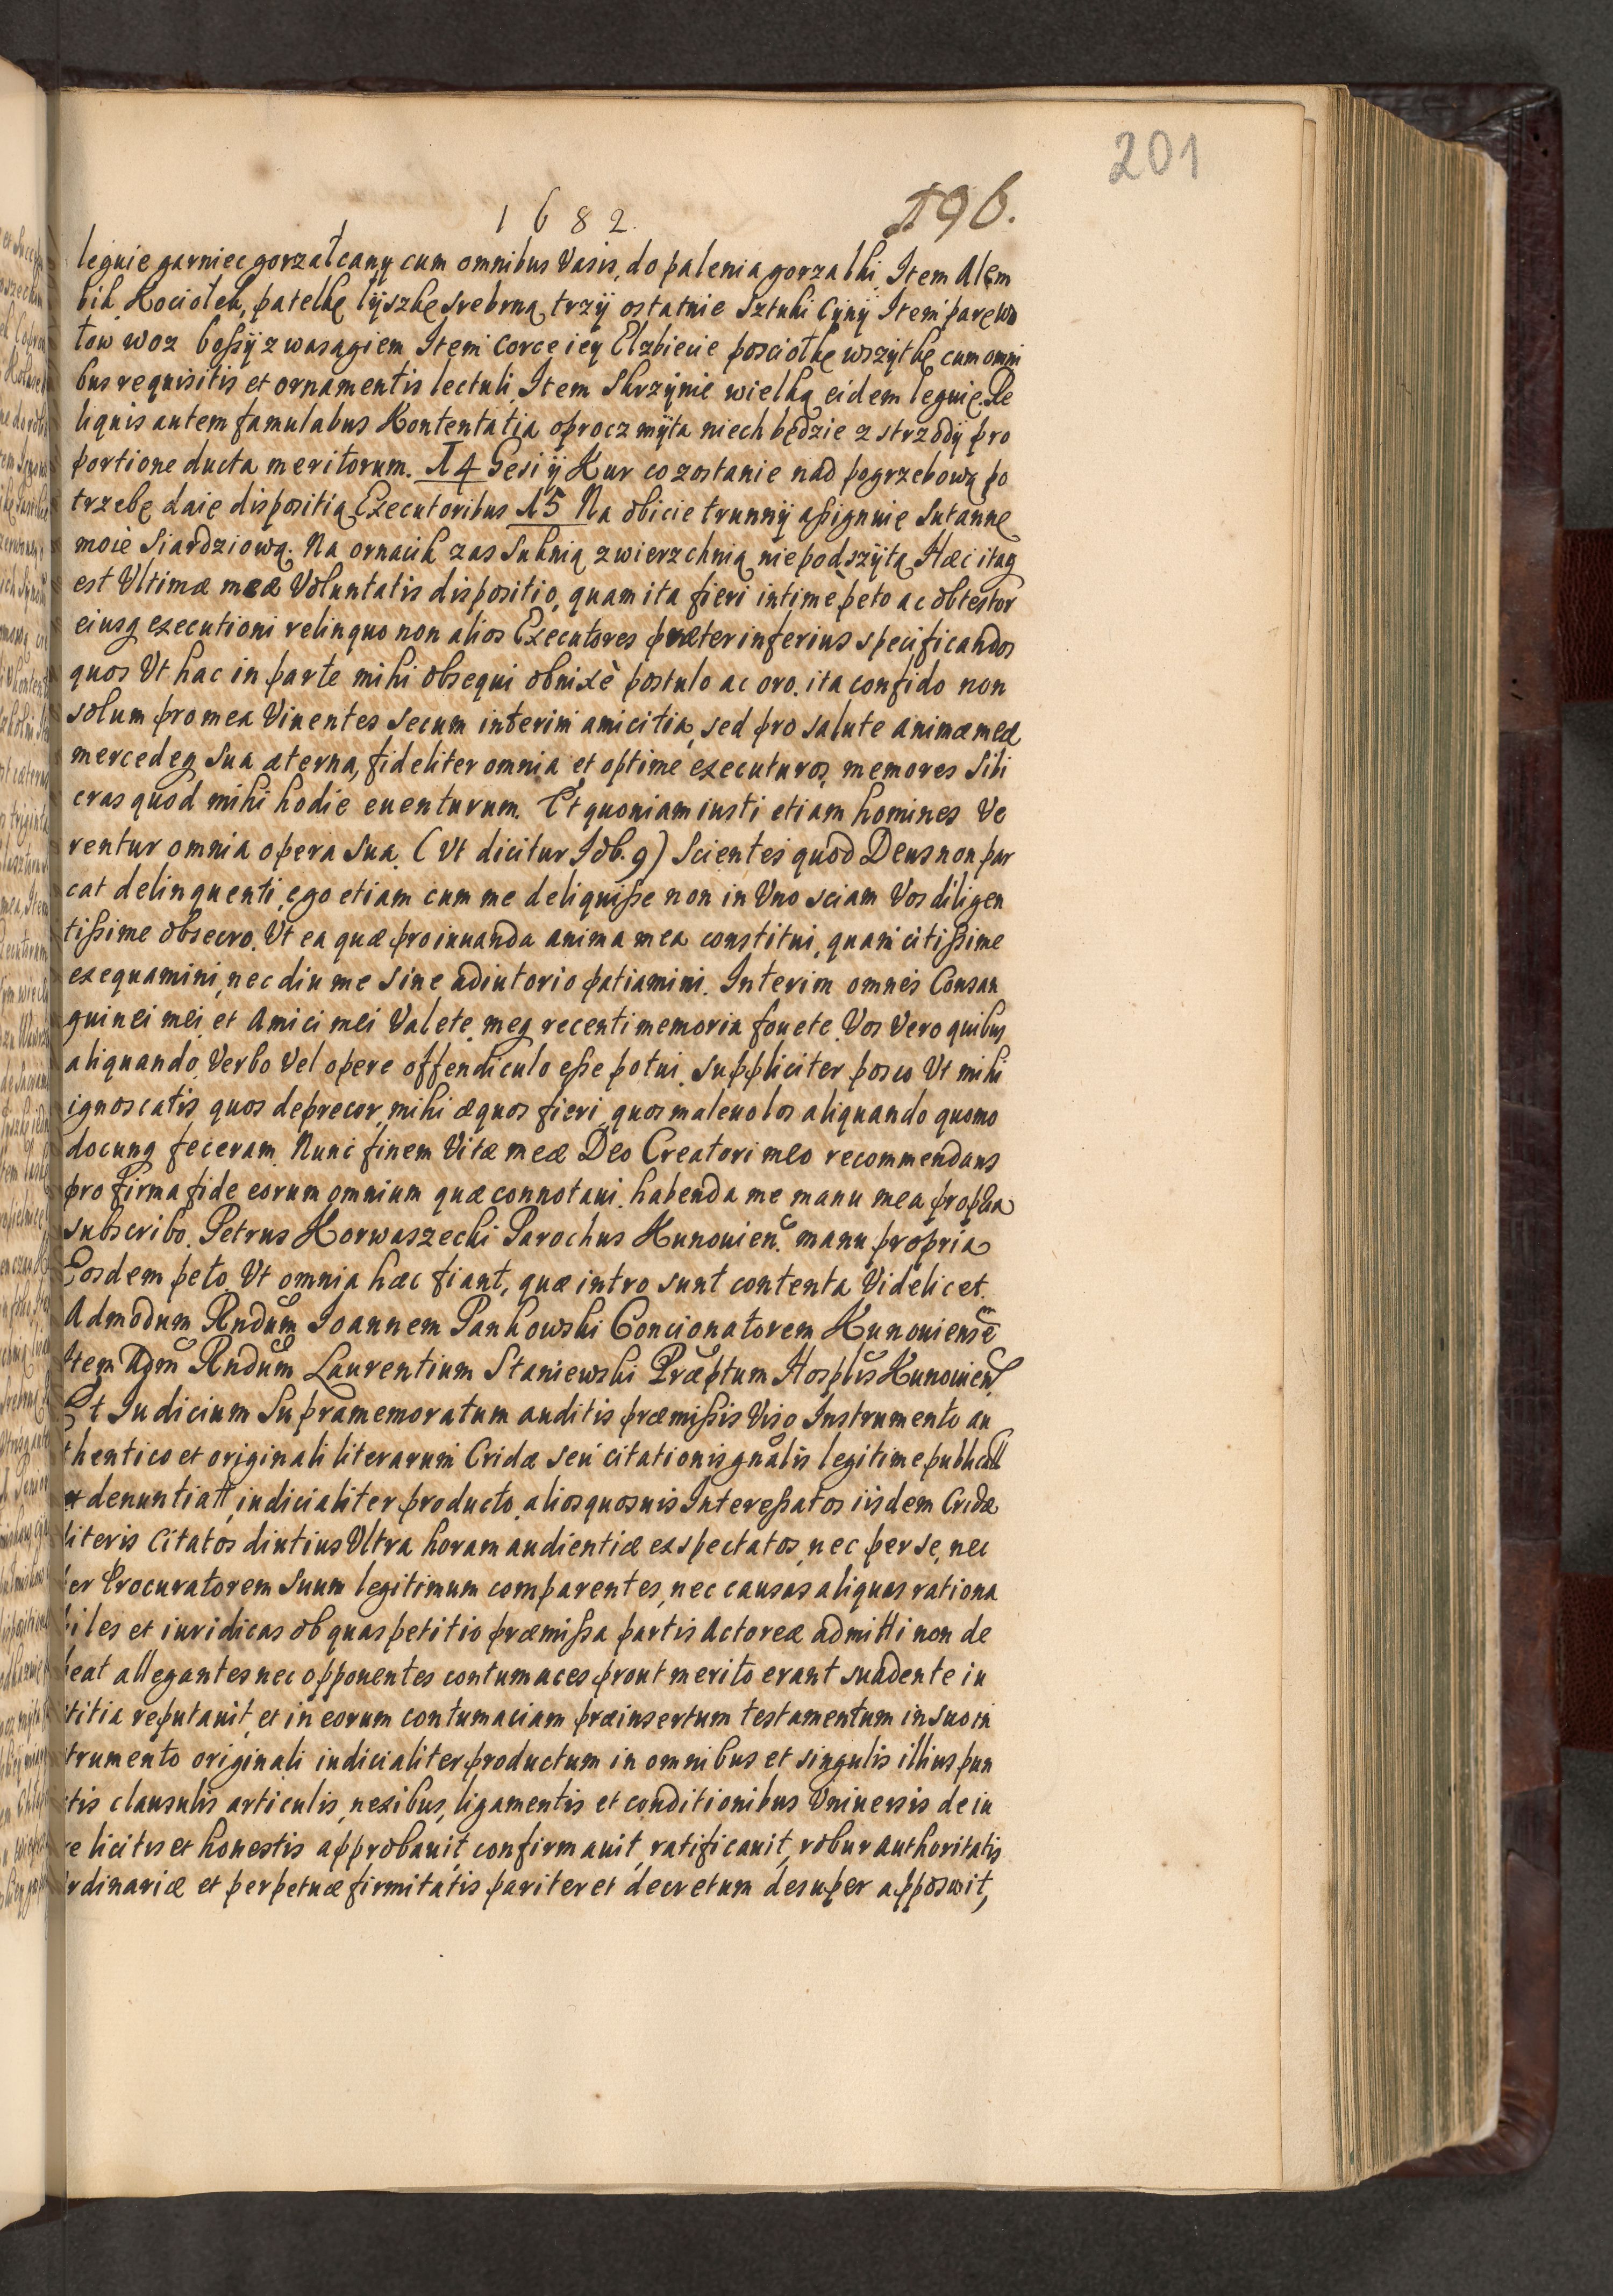 201
1682.
196.
leguie garniec gorzałcany cum omnibus Vasis, do palenia gorzałki, Item Alęm
bik Kociołek, patelkę łÿszkę srebrną, trzÿ ostatnie Sztuki Cÿnÿ Item parę wo
łow woz bossÿ z wasągiem Item Corce ieÿ Elzbiecie posciołkę wszÿtkę cum omni
bus requisitis et ornamentis lectuli, Item Skrzÿnie wielką eidem leguię. Re
liquis autem famulabus Kontentatia oprocz mÿta niech będzie z strzodÿ pro
portione ducta meritorum. 14 Gesi ÿ Kur co zostanie nad pogrzebową po
trzebę daię dispositią Executoribus 15 Na obicie trunnÿ assignuię Sutannę
moię Siardziową. Na ornacik zas Suknią zwierzchnią nie podszÿtą Hæc itaq
est Ultimæ meæ Voluntatis dispositio, quam ita fieri intimè peto ac obtestor
eiusq executioni relinquo non alios Executores præter inferius specificandos
quos Ut hac in parte mihi obsequi obnixè postulo ac oro. ita confido non
solum pro mea Viuentes secum interim amicitia, sed pro salute animæ meæ
mercedeq sua æterna, fideliter omnia et optime executuros, memores Sibi
cras quod mihi hodie euenturum. Et quoniam iusti etiam homines Ve
rentur omnia opera sua. (Ut dicitur Iob. 9) Scientes quod Deus non par
cat delinquenti, ego etiam cum me deliquisse non in Uno sciam Vos diligen
tissime obsecro. Ut ea quæ pro iuuanda anima mea constitui, quam citissime
exequamini, nec diu me sine adiutorio patiamini. Interim omnes Consan
guinei mei et Amici mei Valete meq recenti memoria fouete. Vos Vero quibus
aliquando, Verbo Vel opere offendiculo esse potui, suppliciter posco Ut mihi
ignoscatis, quos deprecor, mihi æquos fieri, quos maleuolos aliquando quomo
docunq feceram. Nunc finem Vitæ meæ Deo Creatori meo recommendans
pro firma fide eorum omnium quæ connotaui. habenda me manu mea propria
subscribo. Petrus Korwaszecki Parochus Kunouien. manu propria
Eosdem peto Ut omnia hæc fiant, quæ intro sunt contenta Videlicet.
Admodum Rndum Ioannem Pankowski Concionatorem Kunouiensē
Item Adm Rndum Laurentium Staniewski Præptum Hosplis Kunouien
Et Iudicium Supramemoratum auditis præmissis Viso Instrumento au
thentico et originali literarum Cridæ seu citationis gnalis legitime publicatt
et denuntiatt, iudicialiter producto, alios quosuis Interessatos iisdem Cridæ
literis Citatos diutius Ultra horam audientiæ exspectatos, nec per se, nec
per Procuratorem Suum legitimum comparentes, nec causas aliquas rationa
biles et iuridicas ob quas petitio præmissa partis Actoreæ admitti non de
beat allegantes nec opponentes contumaces prout merito erant suadente iu
stitia reputauit, et in eorum contumaciam præinsertum testamentum in suo in
strumento originali iudicialiter productum in omnibus et singulis illius pun
ctis clausulis articulis, nexibus, ligamentis et conditionibus Vniuersis de iu
re licitis et honestis approbauit, confirmauit, ratificauit, robur authoritatis
ordinariæ et perpetuæ firmitatis pariter et decretum desuper apposuit,